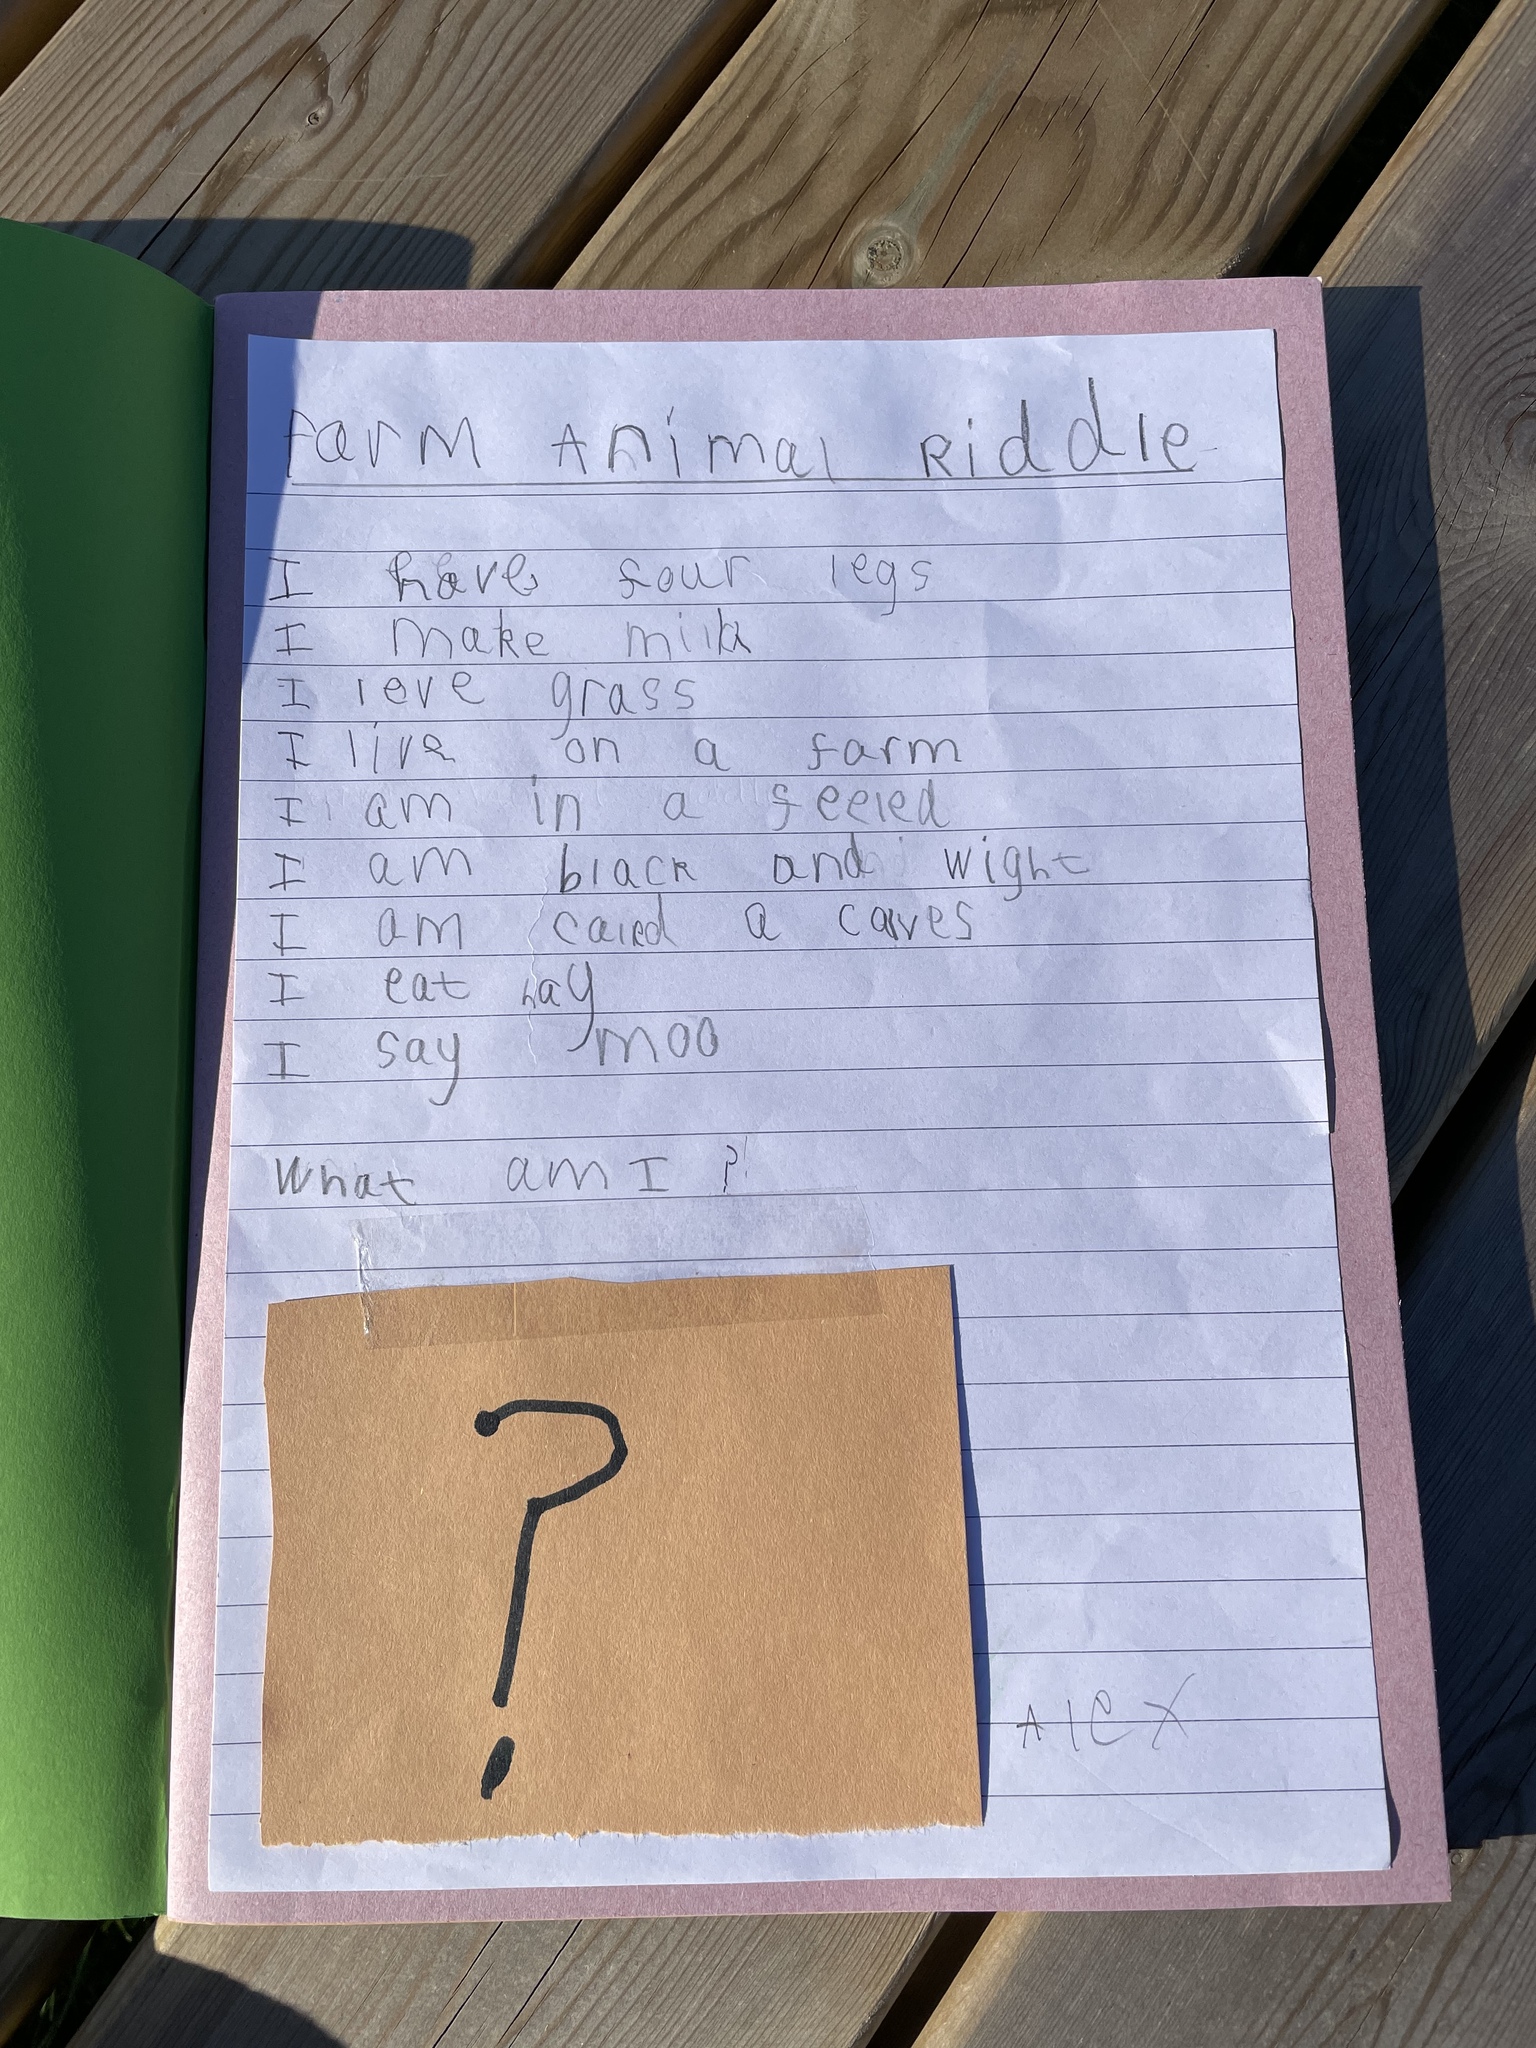 Farm Animal Riddle
I have four legs
I make milk
I leve grass
I live on a farm
I am in a feeled
I am black and wight
I am caled a calves
I eat hay
I say moo
What am I ?
?
Alex